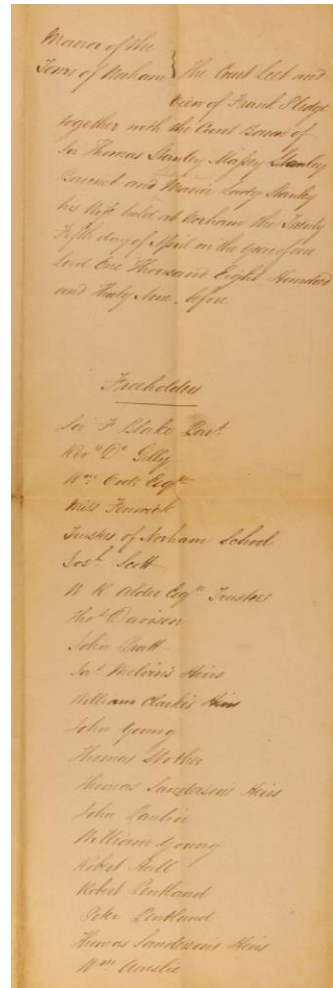 Manor of the
Town of Norham } The Court Leet and
View of Frank Pledge
together with the Court Baron of
Sir Thomas Stanley Massey Stanley
Baronet and Maria Lady Stanley
his Wife held at Norham the Twenty
Fifth day of April in the year of our
Lord One Thousand Eight Hundred
and Thirty Nine, before
Freeholders
Sir F Blake Bart
Revd Dr Gilly
Wm Esqre
Miss Fenwick
Trustees of Norham School
Josh Scott
W K Alder Esqre Trustees
Thos Davison
John Pratt
Jas Melvin's Heirs
William Clarke's Heirs
John Young
Thomas Stother
Thomas Sanderson's Heirs
John
William Young
Robert Hall
Robert Pentland
Peter Pentland
Thomas Sanderson's Heirs
Wm Ainslie